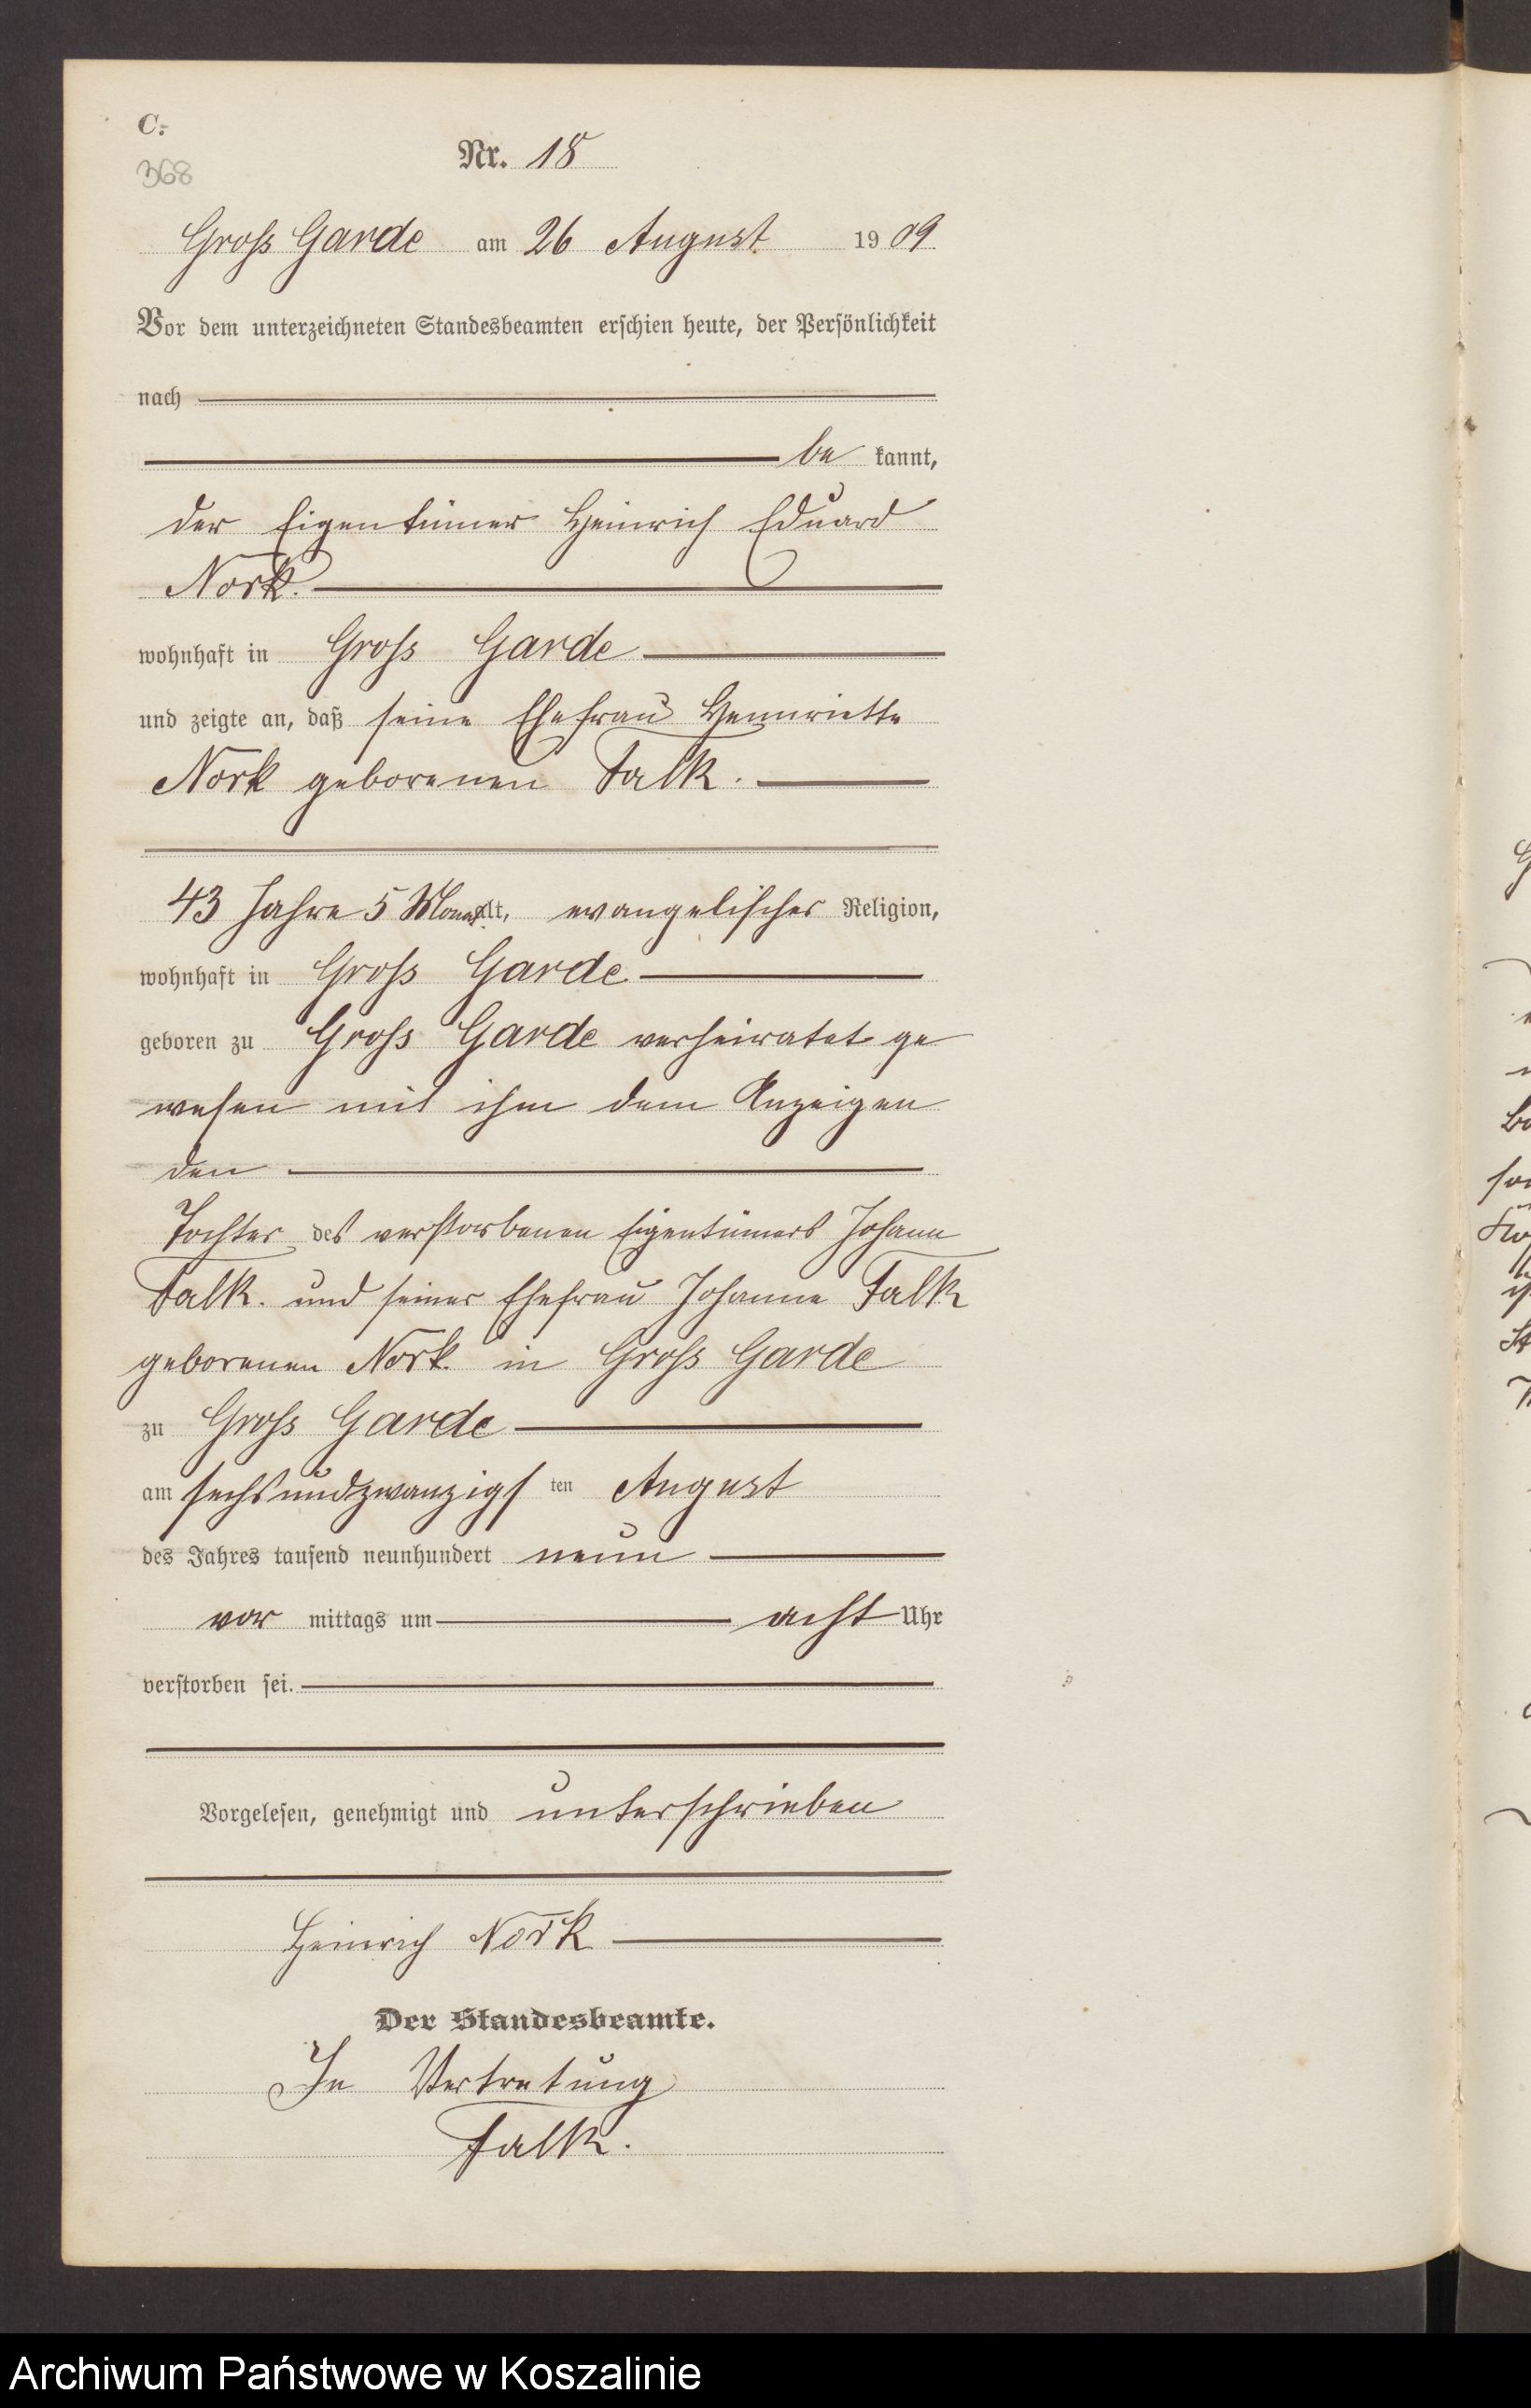 C.
368
Nr. 18
Gross Garde am 26 August 1909
Vor dem unterzeichneten Standesbeamten erschien heute, der Persönlichkeit
nach
be kannt,
der Eigentümer Heinrich Eduard
Nork.
wohnhaft in Gross Garde
und zeigte an, daß seine Ehefrau Hennriette
Nork geborenen Falk.
43 Jahre 5 Monat alt, evangelischer Religion,
wohnhaft in Gross Garde
geboren zu Gross Garde verheiratet ge
wesen mit ihm dem Anzeigen
den
Tochter des verstorbenen Eigentümers Johann
Falk. und seiner Ehefrau Johanne Falk
geborenen Nork. in Gross Garde
zu Gross Garde
am sechsundzwanzigsten August
des Jahres tausend neunhundert neun
vor mittags um acht Uhr
verstorben sei.
Vorgelesen, genehmigt und unterschrieben
Heinrich Nork
Der Standesbeamte.
In Vertretung
Falk.
Archiwum Państwowe w Koszalinie